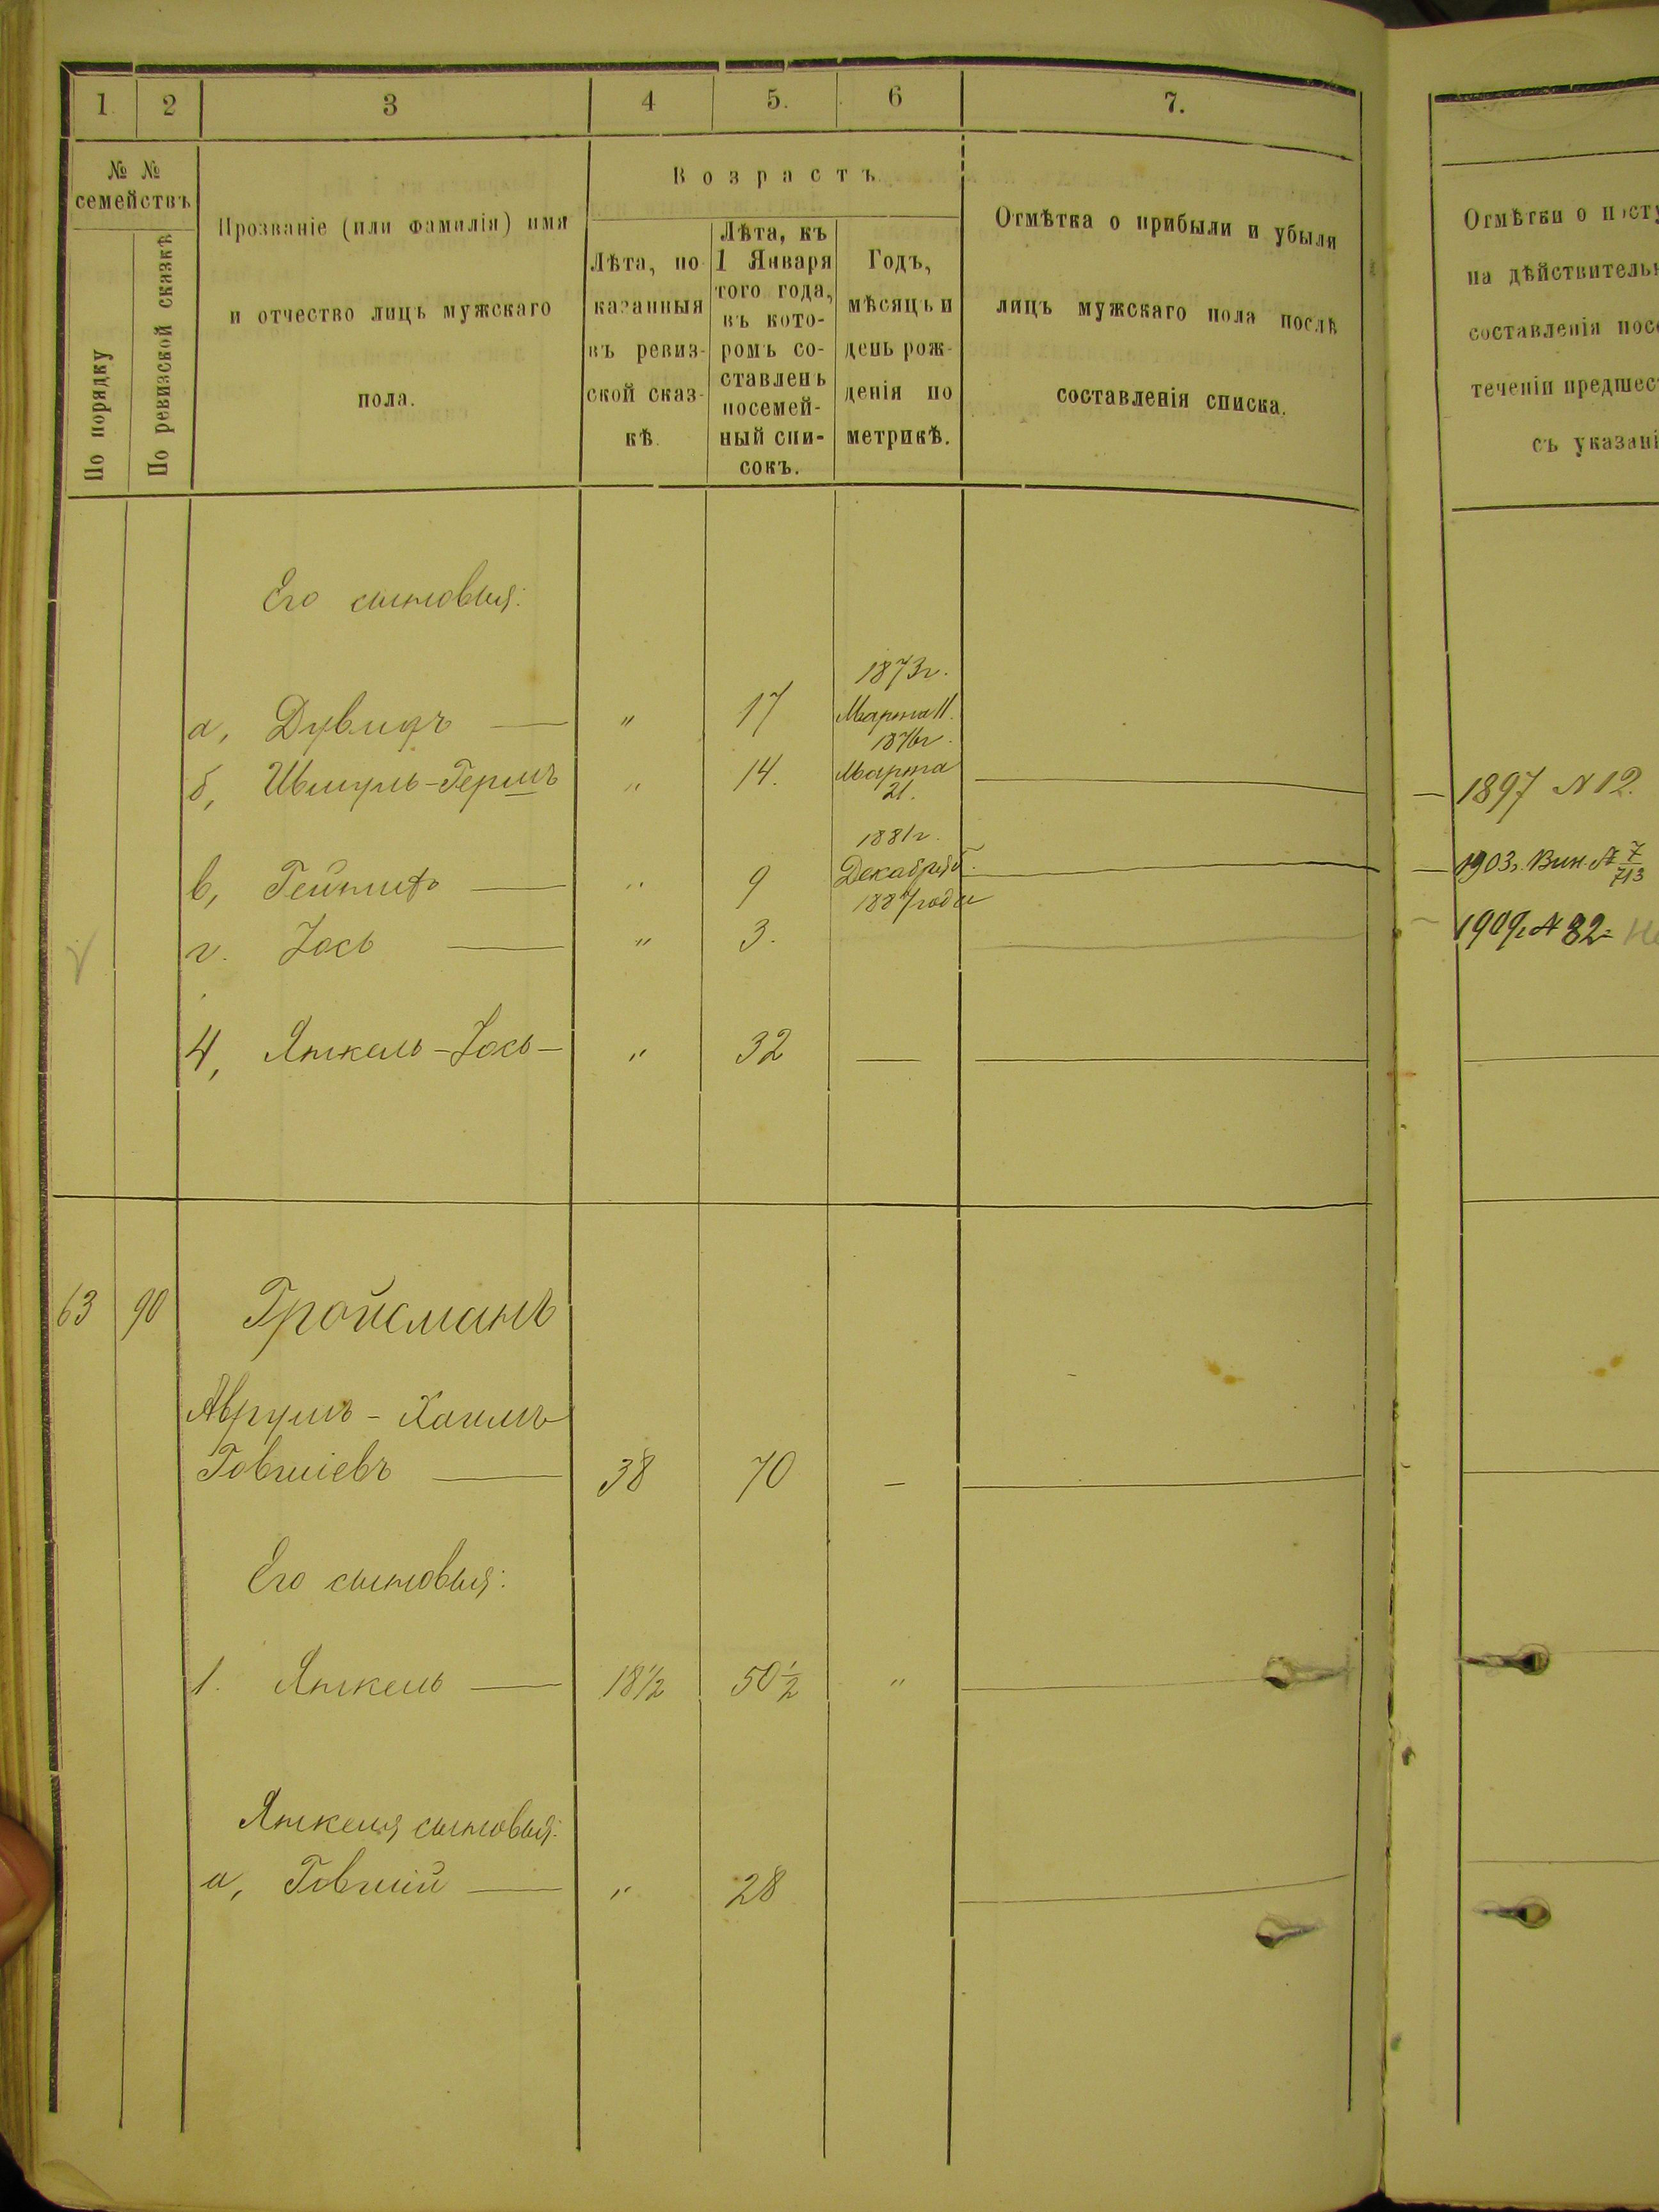 1 2 3 4 5. 6 7.
№ № семействъ
По порядку
По ревизской сказкѣ
Прозваніе (или фамилія) имя
и отчество лицъ мужскаго
пола.
Возрастъ
Лѣта, по
казанныя
въ ревиз-
ской сказ-
кѣ.
Лѣта, къ
1 Января
того года,
въ кото-
ромъ со-
ставленъ
посемей-
ный спи-
сокъ.
Годъ,
мѣсяцъ и
день рож-
денія по
метрикѣ.
Отмѣтка о прибыли и убыли
лицъ мужскаго пола послѣ
составленія списка.
Отмѣтки о посту
на дѣйствительн
составленія посе
теченіи предшест
съ указані
Его сыновья:
1873г.
а, Дувидъ — " 17 Марта 11.
1876г.
б, Шмуль-Гершъ " 14. Марта 21. — 1897 N 12.
1881г.
в, — " 9 Декабря — 1903г. Вин. № 7/713
1887 года
г. Іось — " 3. — 1909г. N 82
4, Янкель-Іось — " 32 —
63 90 Гройсманъ
Аврумъ - Хаимъ
Говшіевъ — 38 70 —
Его сыновья:
1. Янкель — 18½ 50½ "
Янкеля сыновья:
а, Говшій — " 28